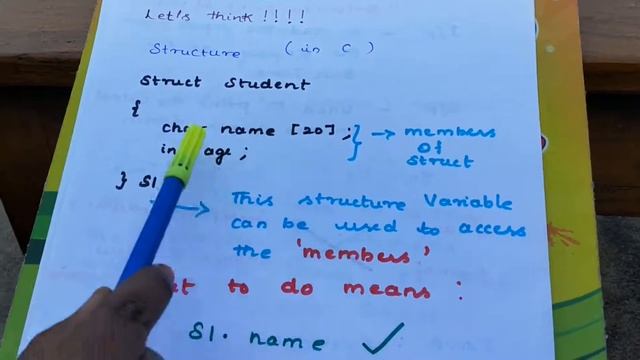 Let's think !!!!
Structure (in C)
Struct Student
{
char name [20] ;
int age ;
} → members
of
Struct
} S1
→ This structure Variable
can be used to access
the 'members'
to do means :
S1. name ✓